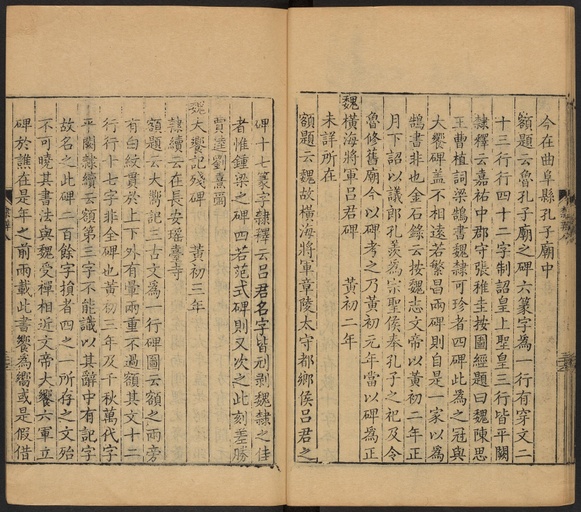 今在曲阜縣孔子廟中
額題云魯孔子廟之碑六篆字為一行有穿文二
十三行行四十二字制詔皇上聖皇三行皆平闕
隸釋云嘉祐中郡守張稚圭按圖經題曰魏陳思
王曹植詞梁鵠書魏隸可珍者四碑此為之冠與
大饗碑盖不相遠若繁昌兩碑則自是一家以為
鵠書非也金石錄云按魏志文帝以黃初二年正
月下詔以議郎孔羨為宗聖侯奉孔子之祀及令
魯修舊廟今以碑考之乃黃初元年當以碑為正
魏橫海將軍吕君碑 黃初二年
未詳所在
額題云魏故橫海將軍章陵太守都鄉侯吕君之
碑十七篆字隸釋云吕君名字皆刓剥魏隸之佳
者惟鍾梁之碑四若范式碑則又次之此刻差勝
賈逵劉熹爾
魏大饗記殘碑 黃初三年
隸續云在長安瑤臺寺
額題云大饗記三古文為一行碑圖云額之兩旁
有白紋貫於上下外有暈兩重不過額其文十二
行行十七字非全碑也黃初三年及千秋萬代字
平闕隸續云額第三字不能識以其辭中有記字
故名之此碑二百餘字損者四之一所存之文殆
不可曉其書法與魏受禪相近文帝大饗六軍立
碑於譙在是年之前兩載此書饗為嚮或是假借